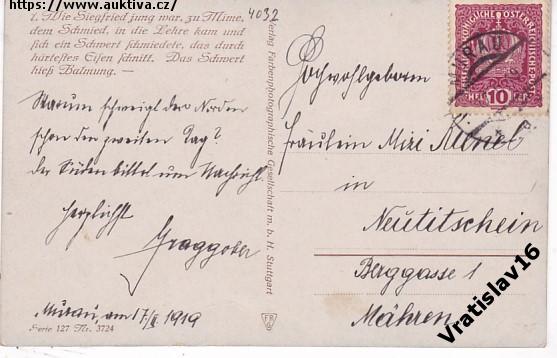 https://www.auktiva.cz/
1. Wie Siegfried jung war, zu Mime,
dem Schmied, in die Lehre kam und
sich ein Schwert schmiedete, das durch
härtestes Eisen schnitt. Das Schwert
hieß Balmung. —
4032
Warum schweigt der Norden
schon den zweiten Tag?
Der Süden bittet um Nachricht.
Herzlichst
Murau, am 17/II 1919
Serie 127 Nr. 3724
Verlag Farbenphotographische Gesellschaft m. b. H. Stuttgart
KÖNIGLICHE ÖSTERREICHISCHE
10
MURAU
Hochwohlgeboren
Fräulein Mizi
in
Neutitschein
Berggasse 1
Mähren
Vratislav16